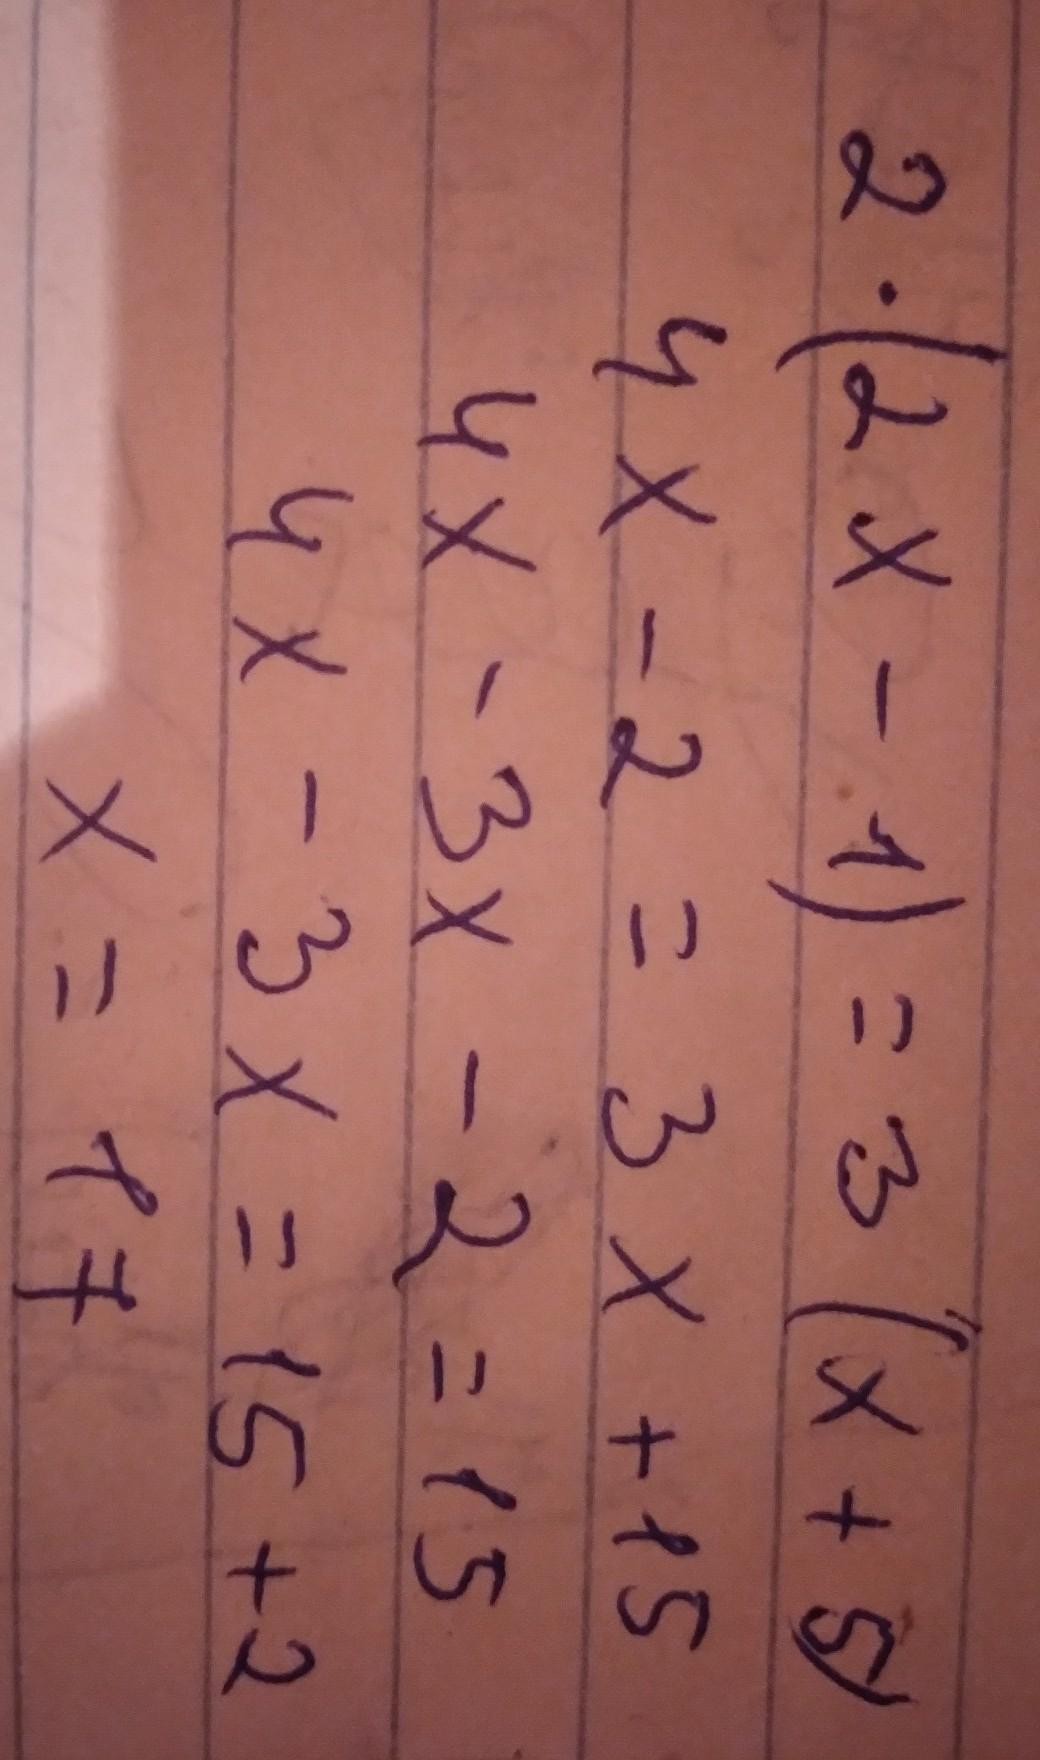 2·(2x-1)=3(x+5)
4x-2=3x+15
4x-3x-2=15
4x-3x=15+2
x=17